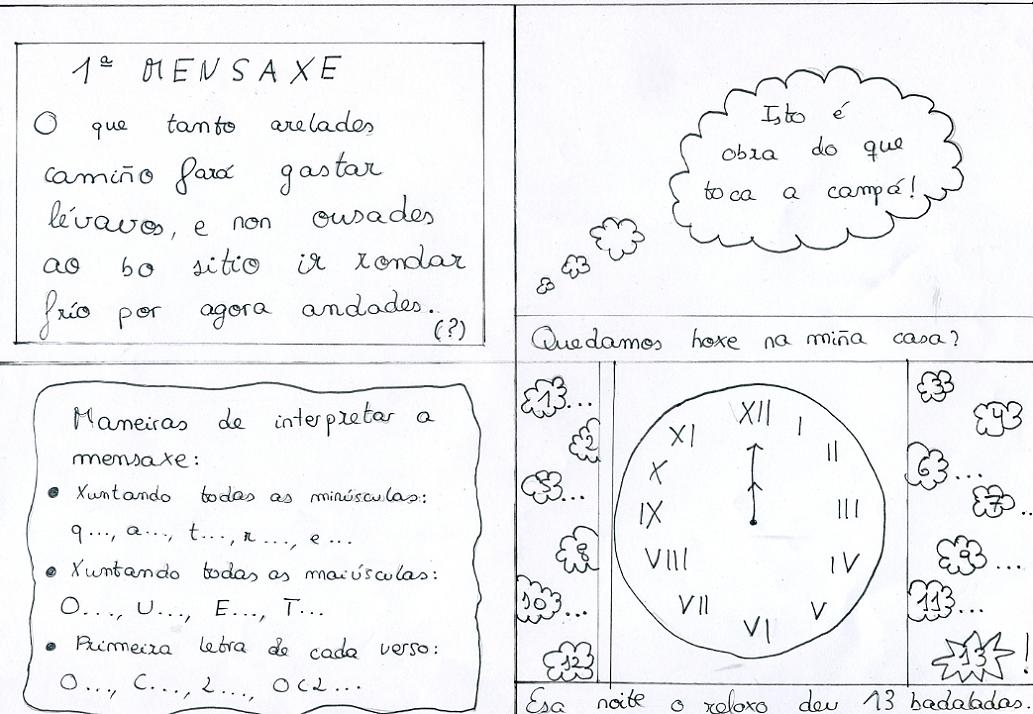 1ª MENSAXE
O que tanto arelades
camiño fará gastar
lévavos, e non ousades
ao bo sitio ir rondar
frío por agora andades...
(?)
Isto é
obra do que
toca a campá!
Quedamos hoxe na miña casa?
Maneiras de interpretar a
mensaxe:
• Xuntando todas as minúsculas:
q..., a..., t..., r..., e...
• Xuntando todas as maiúsculas:
O..., U..., E..., T...
• Primeira letra de cada verso:
O..., C..., L..., OCL...
1...
2
3
4
5...
6...
7...
8
9...
10...
11...
12
13!
XII
I
II
III
IV
V
VI
VII
VIII
IX
X
XI
Esa noite o reloxo deu 13 badaladas.